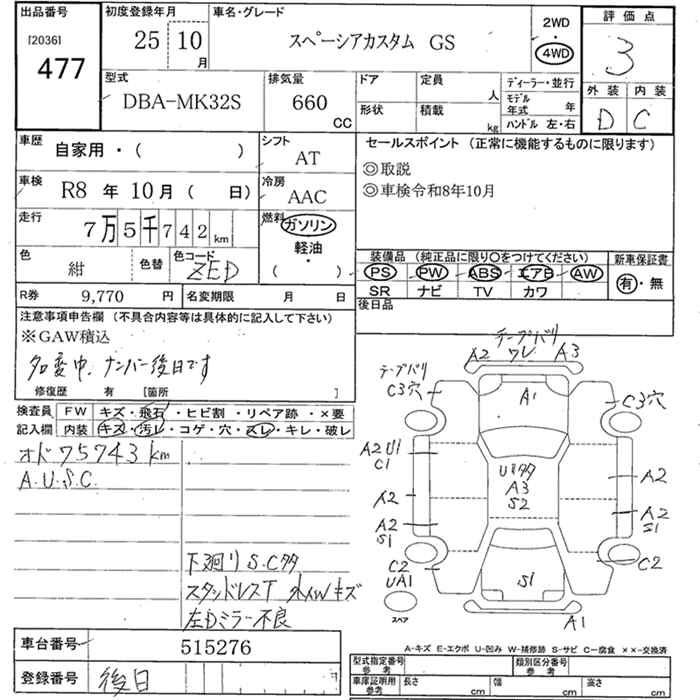 出品番号
[2036]
477
初度登録年月
25 10
月
車名・グレード
スペーシアカスタム GS
2WD
・
4WD
評価点
3
外装 内装
D C
型式
DBA-MK32S
排気量
660
CC
ドア
形状
定員
人
積載
kg
ディーラー・並行
モデル年式 年
ハンドル 左・右
車歴
自家用・( )
シフト
AT
セールスポイント (正常に機能するものに限ります)
◎取説
◎車検令和8年10月
車検
R8 年 10月 ( 日)
冷房
AAC
走行
7万5千742 km
燃料
ガソリン
軽油・
( )
色
紺
色替
色コード
ZED
装備品 (純正品に限り○をつけてください)
PS PW ABS エアB AW
SR ナビ TV カワ
新車保証書
有・無
R券 9,770 円
名変期限 月 日
後日品
注意事項申告欄 (不具合内容等は具体的に記入して下さい)
※GAW積込
名変中、ナンバー後日です
修復歴 有 [箇所 ]
検査員記入欄
FW キズ・飛石・ヒビ割・リペア跡・×要
内装 キズ・汚レ・コゲ・穴・スレ・キレ・破レ
オド75743km
A.U.S.C.
下廻りS.Cタタ
スタッドレスT 外AWキズ
左Dミラー不良
テープバリ
A2 ワレ A3
テープバリ
C3穴
A1
C3穴
A2 U1
C1
Uタタ
A3
S2
A2
A2
A2
S1
A2
S1
C2
UA1
C2
S1
A1
スペア
車台番号
515276
登録番号
後日
A-キズ E-エクボ U-凹み W-補修跡 S-サビ C-腐食 ××-交換済
型式指定番号
参考
類別区分番号
参考
車庫証明用
参考
長さ cm
幅 cm
高さ cm